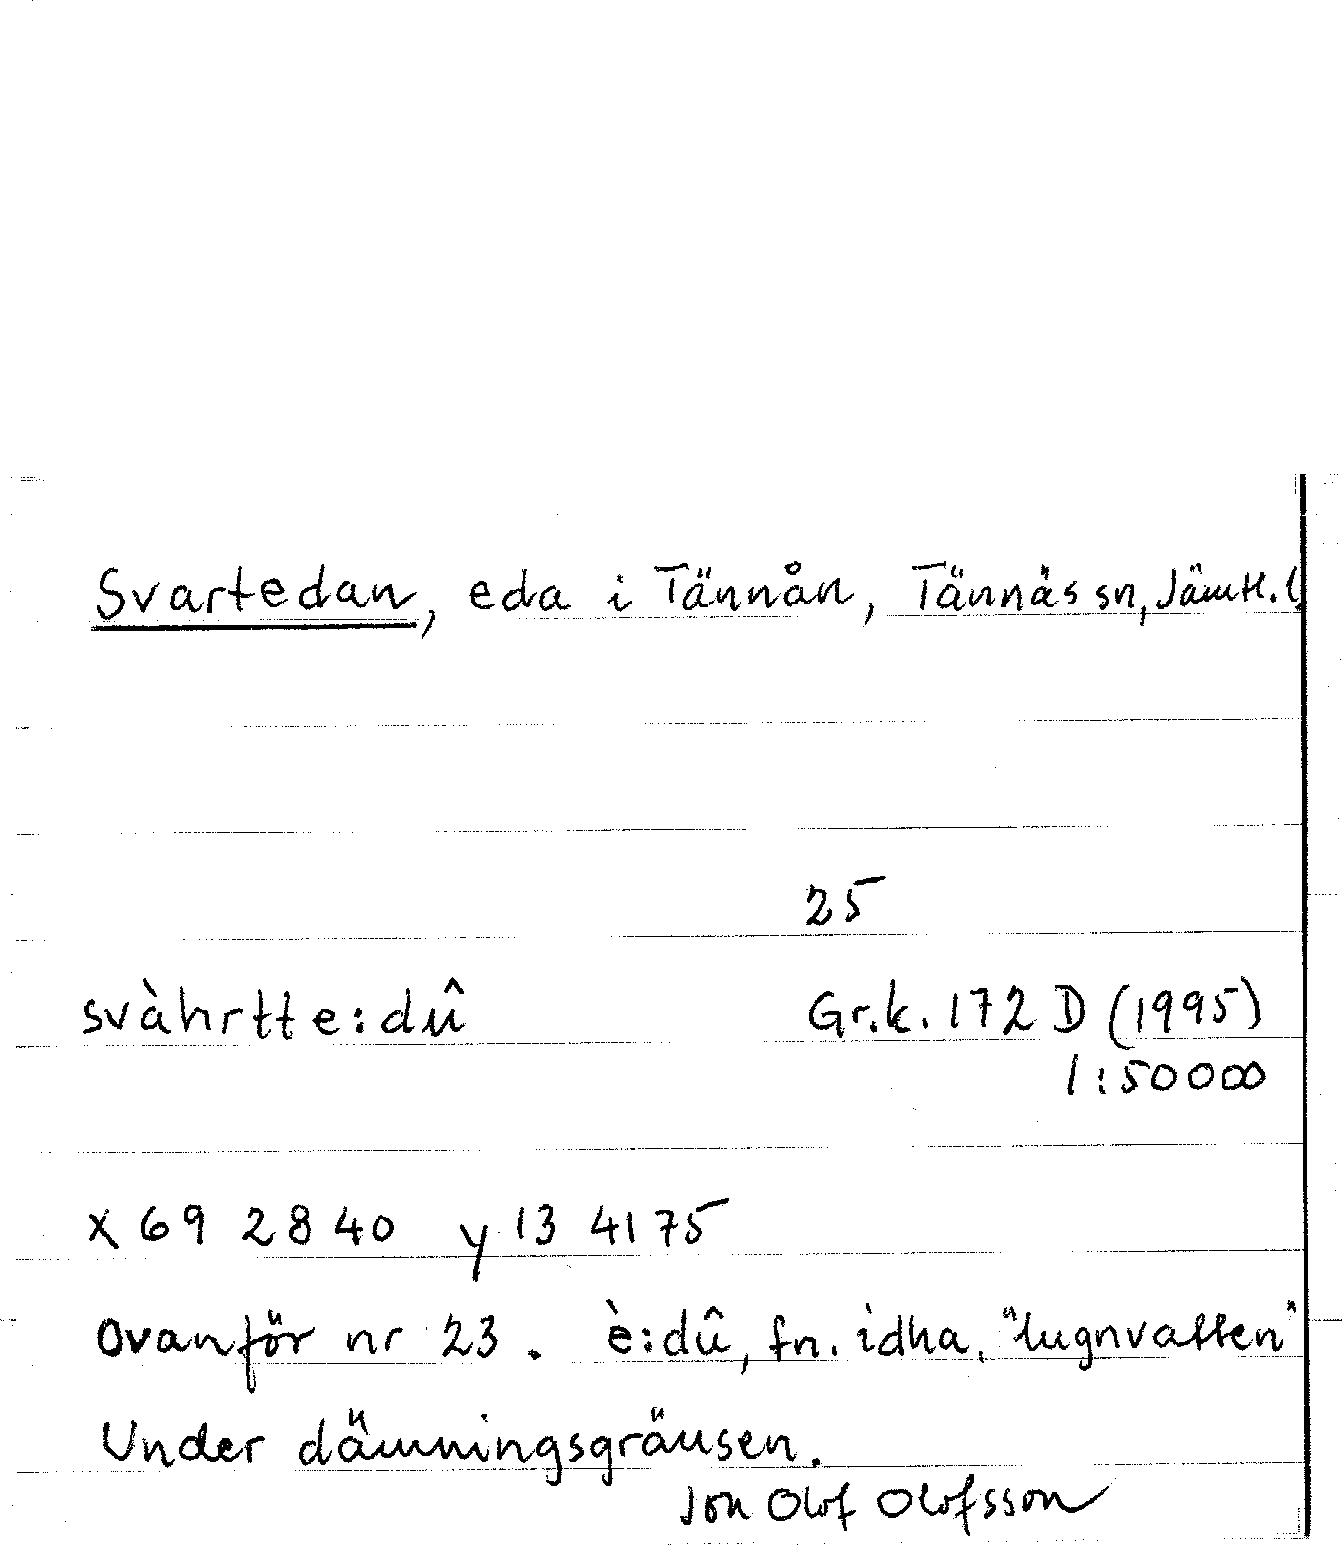 Svartedan, eda i Tännån, Tännäs sn, Jämtl. l.
25
svàhrtte:dû Gr.k. 172 D (1995)
1:50000
x 69 28 40 y 13 41 75
Ovanför nr 23. è:dû, fn. idha, "lugnvatten"
Under dämningsgränsen.
Jon Olof Olofsson